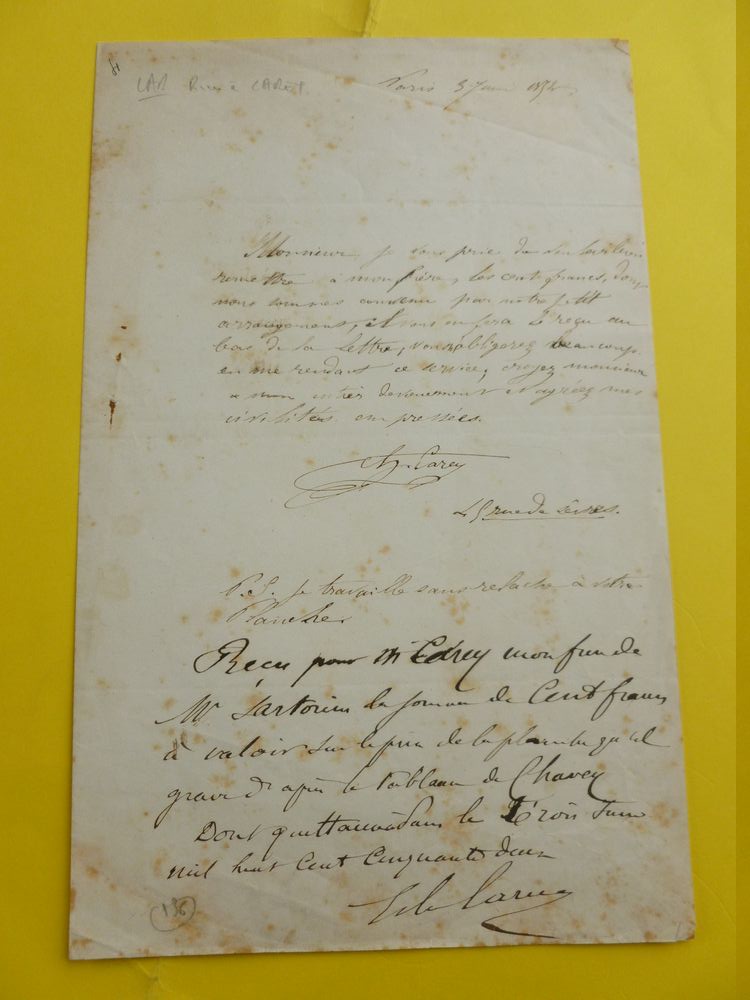 LAS
Paris 3 Juin 1852
Monsieur je vous prie de
remettre à mon frère, les cent francs, dont
nous sommes convenu par notre petit
arrangement, il vous en fera le reçu au
bas de la lettre, vous obligerez beaucoup
en me rendant ce service, croyez monsieur
a mon entier devouement et agréez mes
civilités empressées.
Ch. Carey
45 rue de Sèvres.
P.S. je travaille sans relache a votre
Planche
Reçu pour Mr Carey mon frère de
Mr Sartorius la somme de Cent francs
à valoir sur le prix de la planche qu'il
grave d'après le tableau de Chavet
Dont quittance Paris le Trois Juin
mil huit Cent Cinquante deux
Carey
136